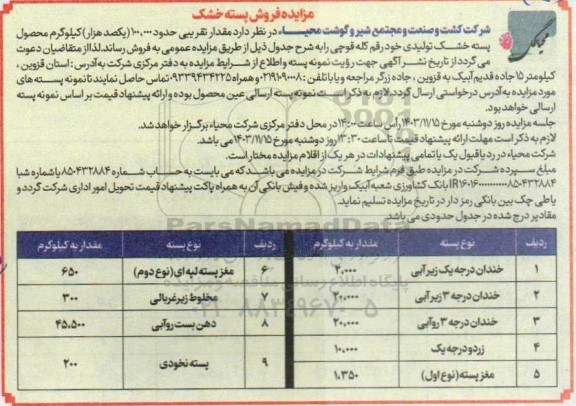 مزایده فروش پسته خشک
شرکت کشت و صنعت و مجتمع شیر و گوشت محیاء، در نظر دارد مقدار تقریبی حدود ۱۰۰,۰۰۰ (یکصد هزار) کیلوگرم محصول
پسته خشک تولیدی خود رقم کله قوچی را به شرح جدول ذیل از طریق مزایده عمومی به فروش رساند. لذا از متقاضیان دعوت
می گردد از تاریخ نشر آگهی جهت رؤیت نمونه پسته و اطلاع از شرایط مزایده به دفتر مرکزی شرکت به آدرس: استان قزوین،
کیلومتر ۱۵ جاده قدیم آبیک به قزوین، جاده زرگر مراجعه و یا با تلفن: ۰۲۱۹۱۰۹۰۰۰۸ و همراه ۰۹۲۳۹۴۳۴۲۲۵ تماس حاصل نمایند تا نمونه پسته های
مورد مزایده به آدرس درخواستی ارسال گردد. لازم به ذکر است نمونه پسته ارسالی عین محصول بوده و ارائه پیشنهاد قیمت بر اساس نمونه پسته
ارسالی خواهد بود.
جلسه مزایده روز دوشنبه مورخ ۱۴۰۳/۱۱/۱۵ رأس ساعت ۱۴:۰۰ در محل دفتر مرکزی شرکت محیاء برگزار خواهد شد.
لازم به ذکر است مهلت ارائه پیشنهاد قیمت تا ساعت ۱۳:۳۰ روز دوشنبه مورخ ۱۴۰۳/۱۱/۱۵ می باشد.
شرکت محیاء در رد یا قبول یک یا تمامی پیشنهادات در هر یک از اقلام مزایده مختار است.
مبلغ سپرده شرکت در مزایده طبق فرم شرایط شرکت در مزایده می باشد که می بایست به حساب شماره ۸۵۰۴۳۲۸۸۴ یا شماره شبا
بانک کشاورزی شعبه آبیک واریز شده و فیش بانکی آن به همراه پاکت پیشنهاد قیمت تحویل امور اداری شرکت گردد و
یا طی چک بین بانکی رمز دار در تاریخ مزایده تسلیم نماید.
مقادیر درج شده در جدول حدودی می باشد.
ردیف نوع پسته مقدار به کیلوگرم ردیف نوع پسته مقدار به کیلوگرم
۱ خندان درجه یک زیر آبی ۲,۰۰۰ ۶ مغز پسته لپه ای (نوع دوم) ۶۵۰
۲ خندان درجه ۳ زیر آبی ۲۰,۰۰۰ ۷ مخلوط زیر غربالی ۳۰۰
۳ خندان درجه ۳ روآبی ۲۰,۰۰۰ ۸ دهن بست روآبی ۴۵,۵۰۰
۴ زرد و درجه یک ۱۰,۰۰۰ ۹ پسته نخودی ۲۰۰
۵ مغز پسته (نوع اول) ۱,۳۵۰
ParsNamadData
پایگاه اطلاع رسانی مناقصه و مزایده
۰۲۱-۸۸۳۴۹۶۷۰-۵